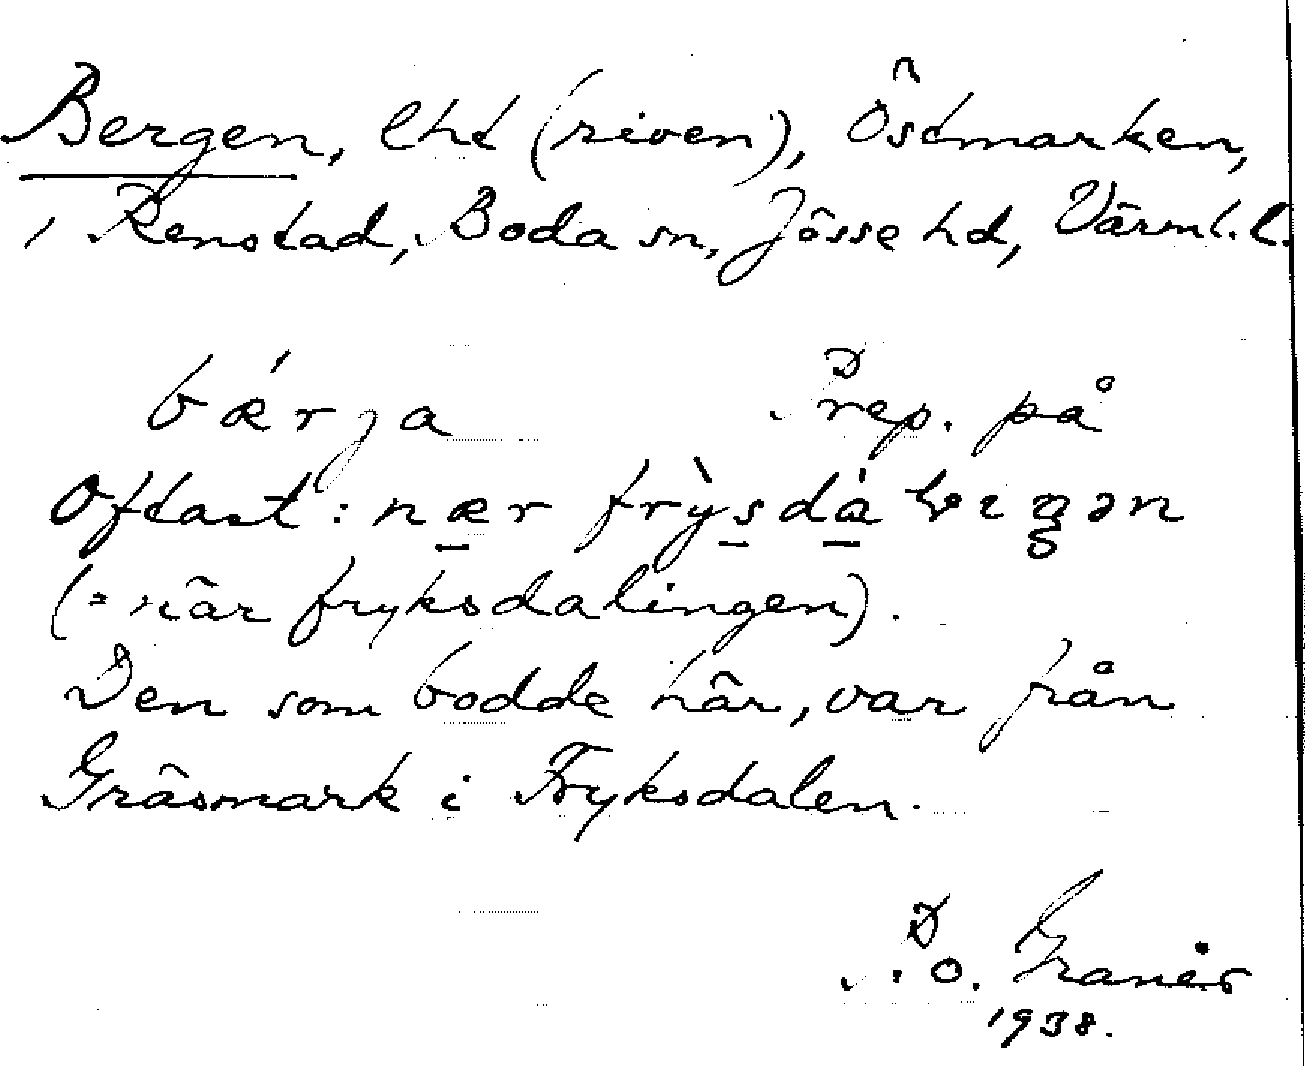 Bergen, lht (riven), Östmarken,
i Renstad, Boda sn, Jösse hd, Värml. l.
bǽrja Prep. på
Oftast: nær frỳsdàl
(= när fryksdalingen).
Den som bodde här, var från
Gräsmark i Fryksdalen.
P. O. Granér
1938.